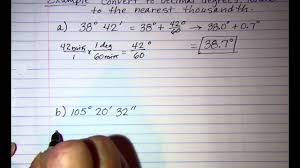 Example Convert to decimal degrees, round
to the nearest thousandth.
a) 38° 42' = 38° + 42°/60 → 38.0° + 0.7°
42 mins/1 x 1 deg/60 mins = 42°/60 = 38.7°
b) 105° 20' 32"